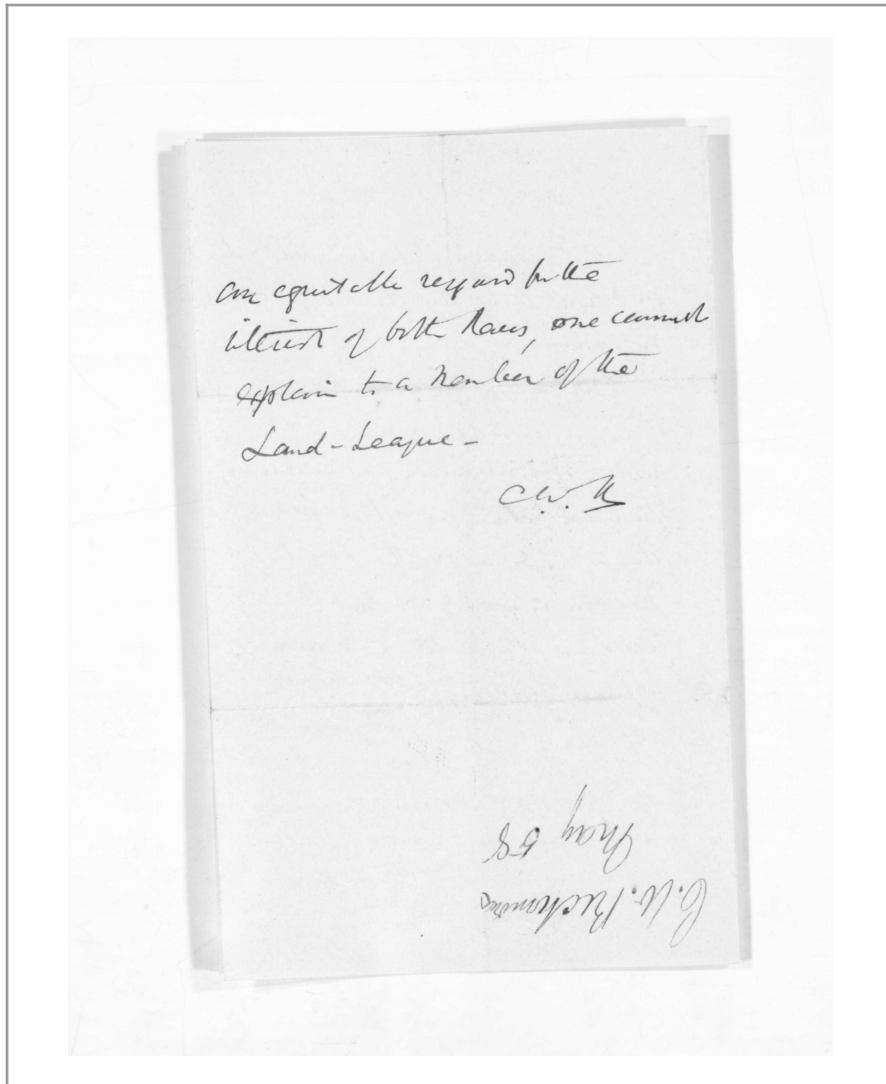 an equitable regard for the
interest of both Races, one cannot
explain to a Member of the
Land-League -
C.W. R
C. W. Richmond
May 58